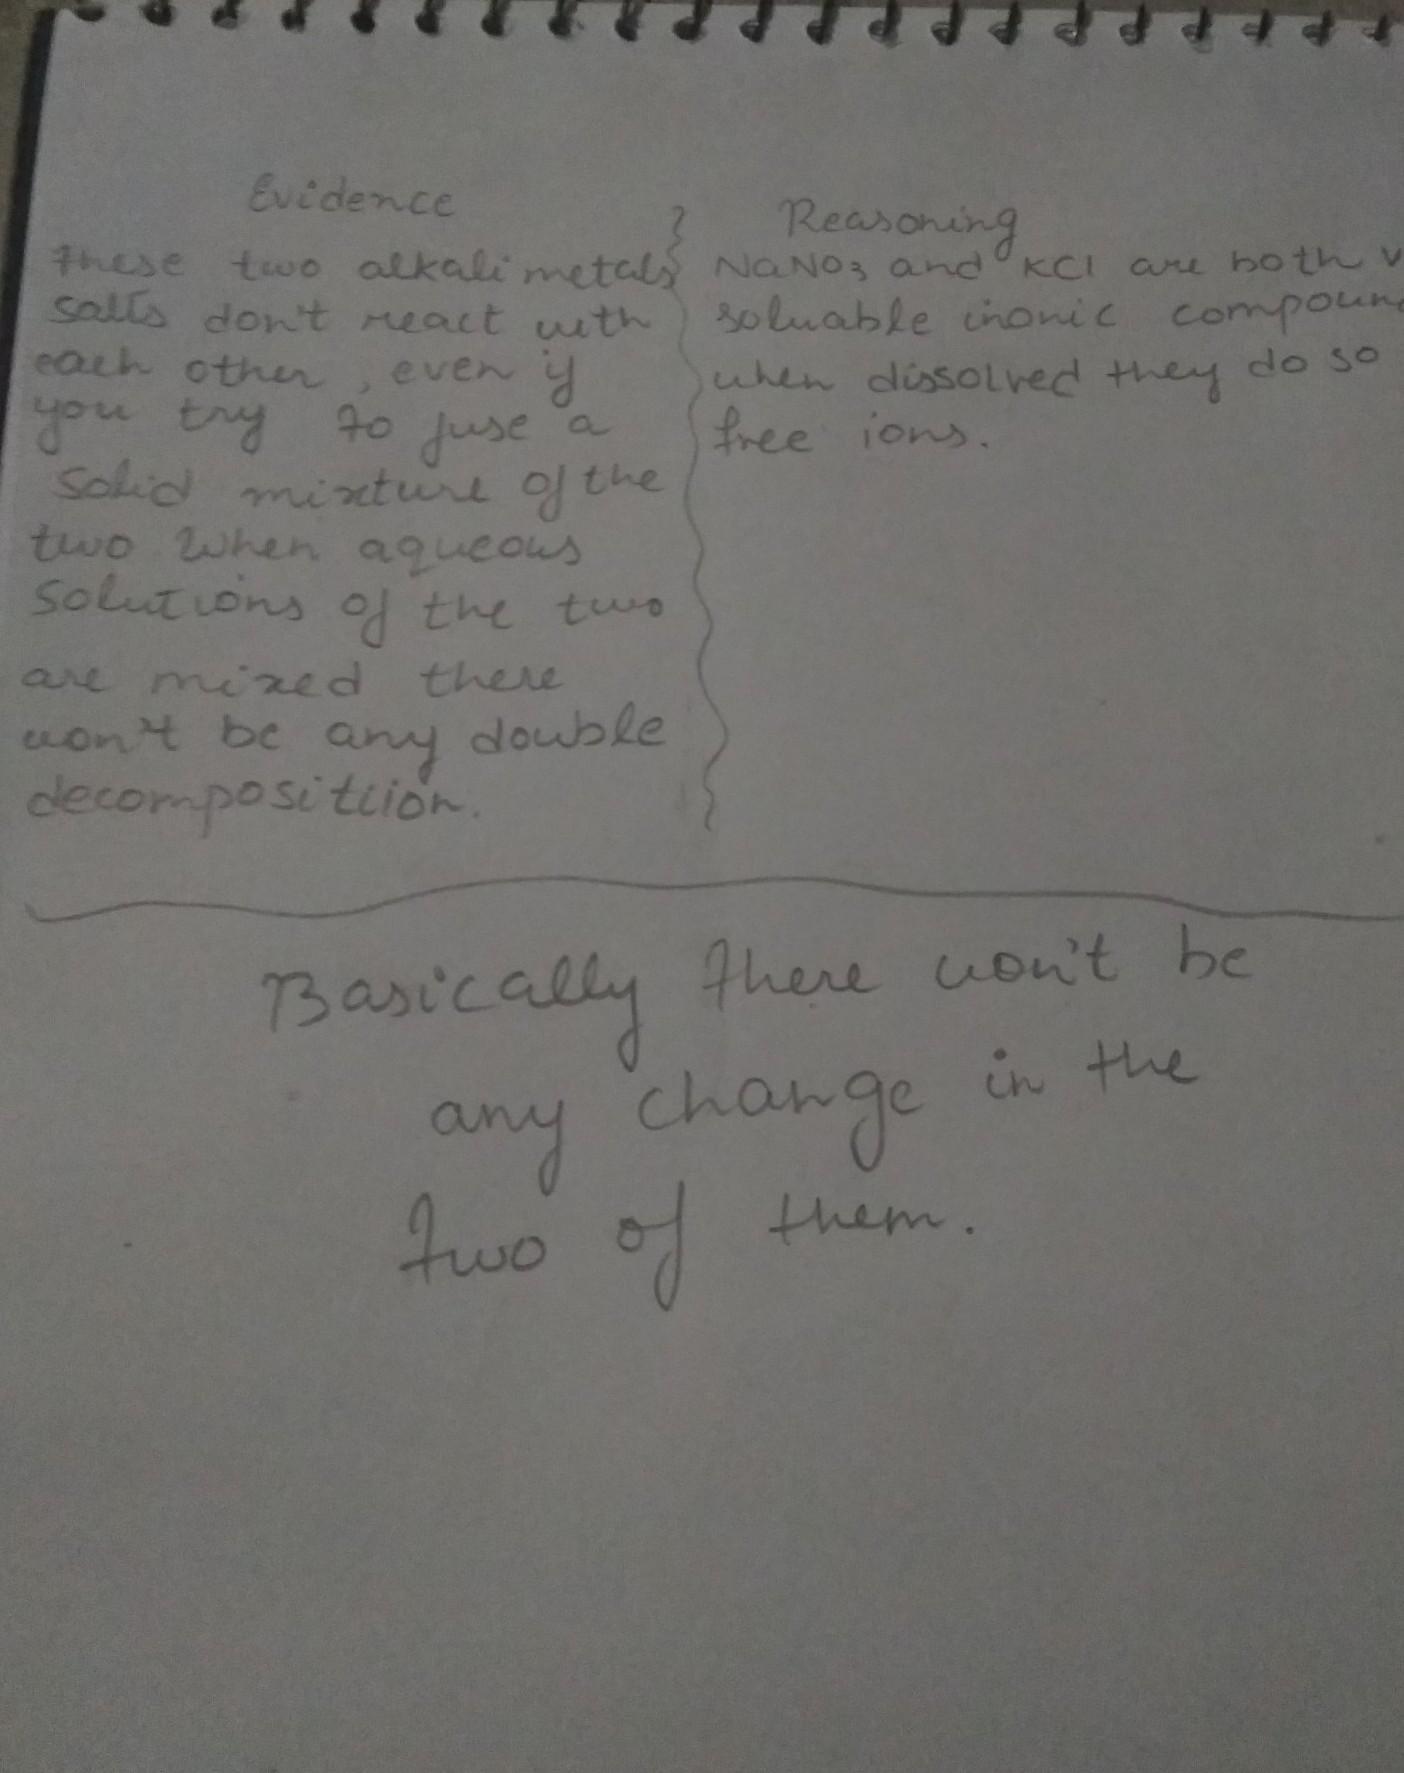 Evidence
these two alkali metals
salts don't react with
each other, even if
you try to fuse a
solid mixture of the
two when aqueous
solutions of the two
are mixed there
won't be any double
decomposition.
Reasoning
NaNO3 and KCl are both
soluable inonic
when dissolved they do so
free ions.
Basically there won't be
any change in the
two of them.